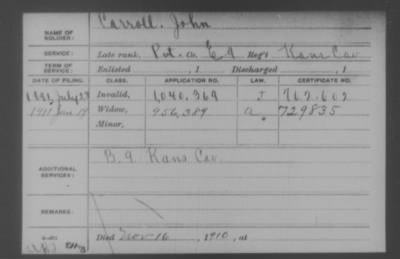 NAME OF SOLDIER: Carroll, John
SERVICE: Late rank, Pvt. Co. E 9 Reg't Kans Cav
TERM OF SERVICE: Enlisted , 1 Discharged , 1
DATE OF FILING. CLASS. APPLICATION NO. LAW. CERTIFICATE NO.
1891, July 27 Invalid, 1,040,369 J 762.602
1911 Jan 19 Widow, 956,389 a. 729835
Minor,
ADDITIONAL SERVICES: B. 9 Kans Cav.
REMARKS:
Died Nov-16, 1910, at